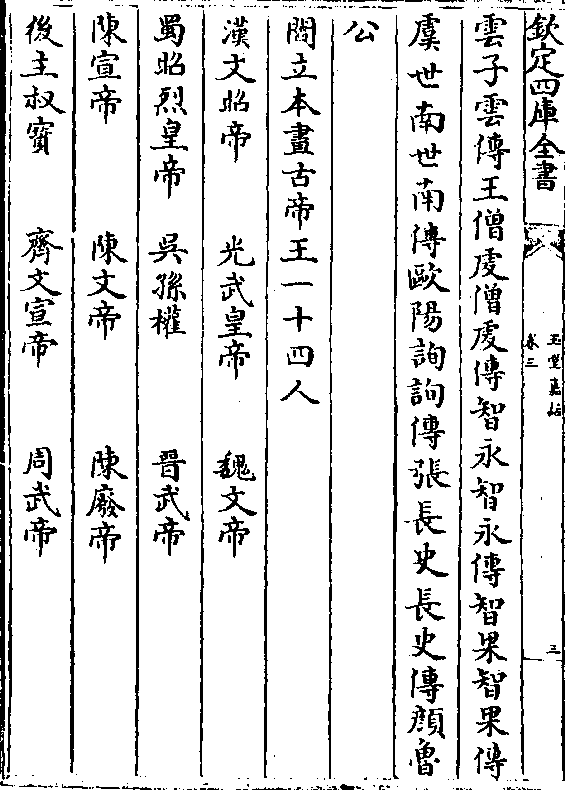 欽定四庫全書
玉堂嘉話
卷三
三
雲子雲傳王僧虔僧虔傳智永智永傳智果智果傳
虞世南世南傳歐陽詢詢傳張長史長史傳顔魯
公
閻立本畫古帝王一十四人
漢文昭帝 光武皇帝 魏文帝
蜀昭烈皇帝 吳孫權 晉武帝
陳宣帝 陳文帝 陳廢帝
後主叔寶 齊文宣帝 周武帝